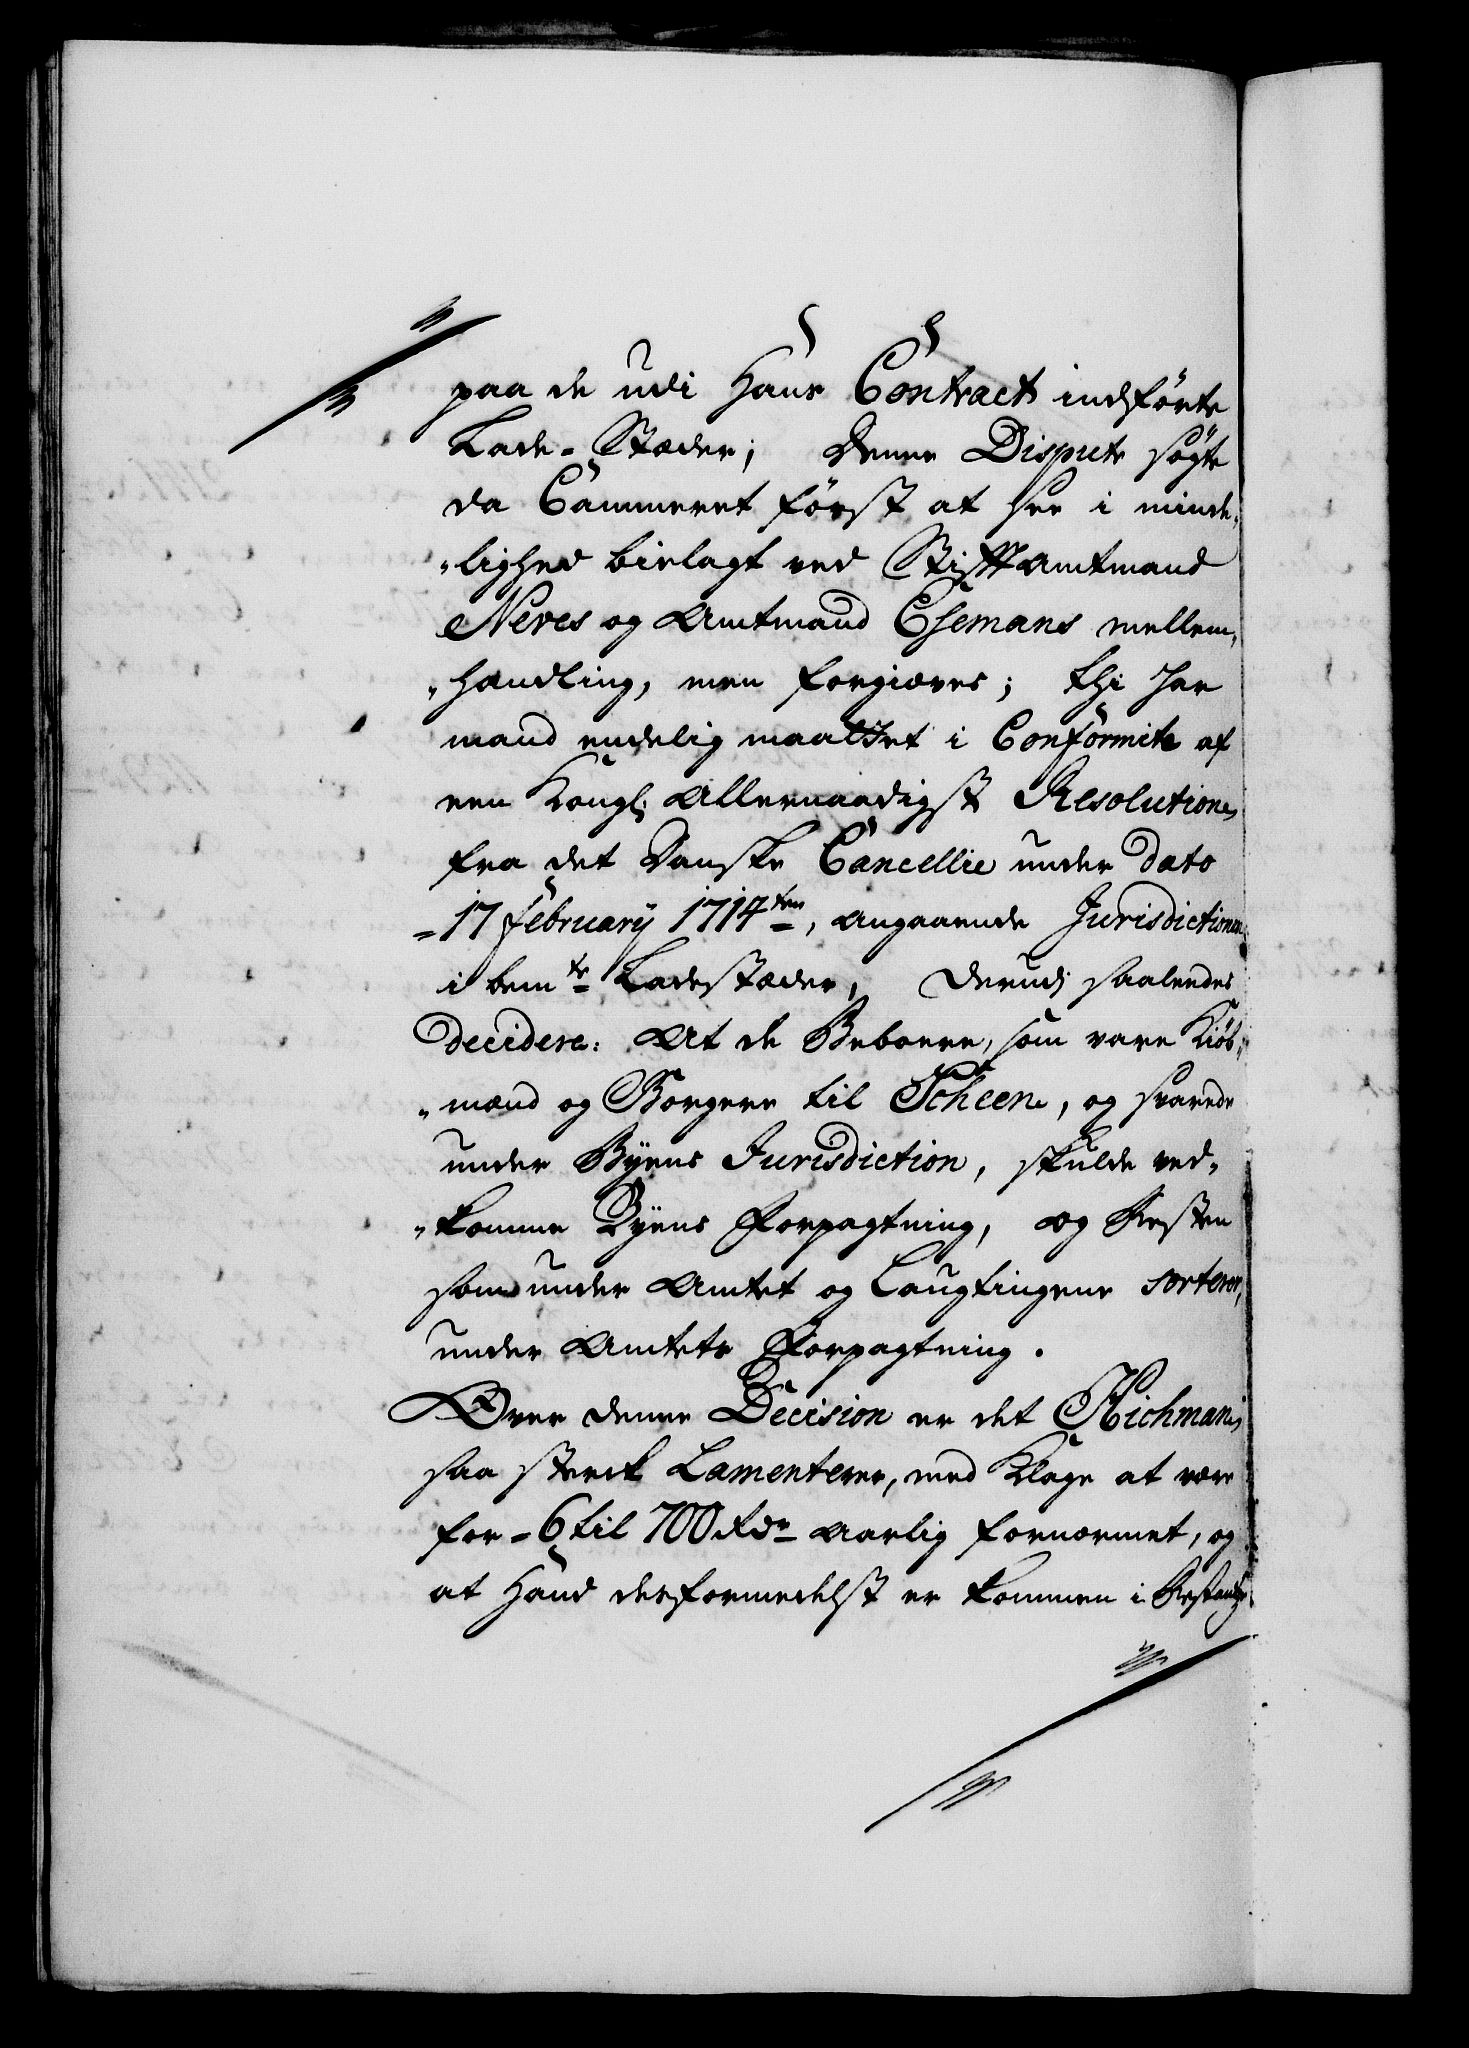 paa de udi Hans Contract indførte
Lade-Stæder; Denne Dispute søgte
da Cammeret først at see i minde„
„lighed bielagt ved Stifftamtmand
Neves og Amtmand Esemans mellem„
„handling, men forgiæves; thi har
mand endelig maattet i Conformite af
een Kongl: Allernaadigst Resolution
fra det Danske Cancellie under Dato
-17 february 1714ten, angaaende Jurisdictionen
i bemte Ladestæder, derudj saaleedes
decidere: At de Beboere, som vare Kiøb„
„mænd og Borgere til Scheen, og svarede
under Byens Jurisdiction, skulde ved„
„komme Byens Forpagtning, og Resten
som under Amtet og Laugtingene sorterer,
under Amtets Forpagtning.
Over denne Decision er det Richman
saa sterck Lamenterer, med Klage at være
for -6 til 700 Rdr aarlig fornærmet, og
at Hand desformedelst er kommen i Restantz